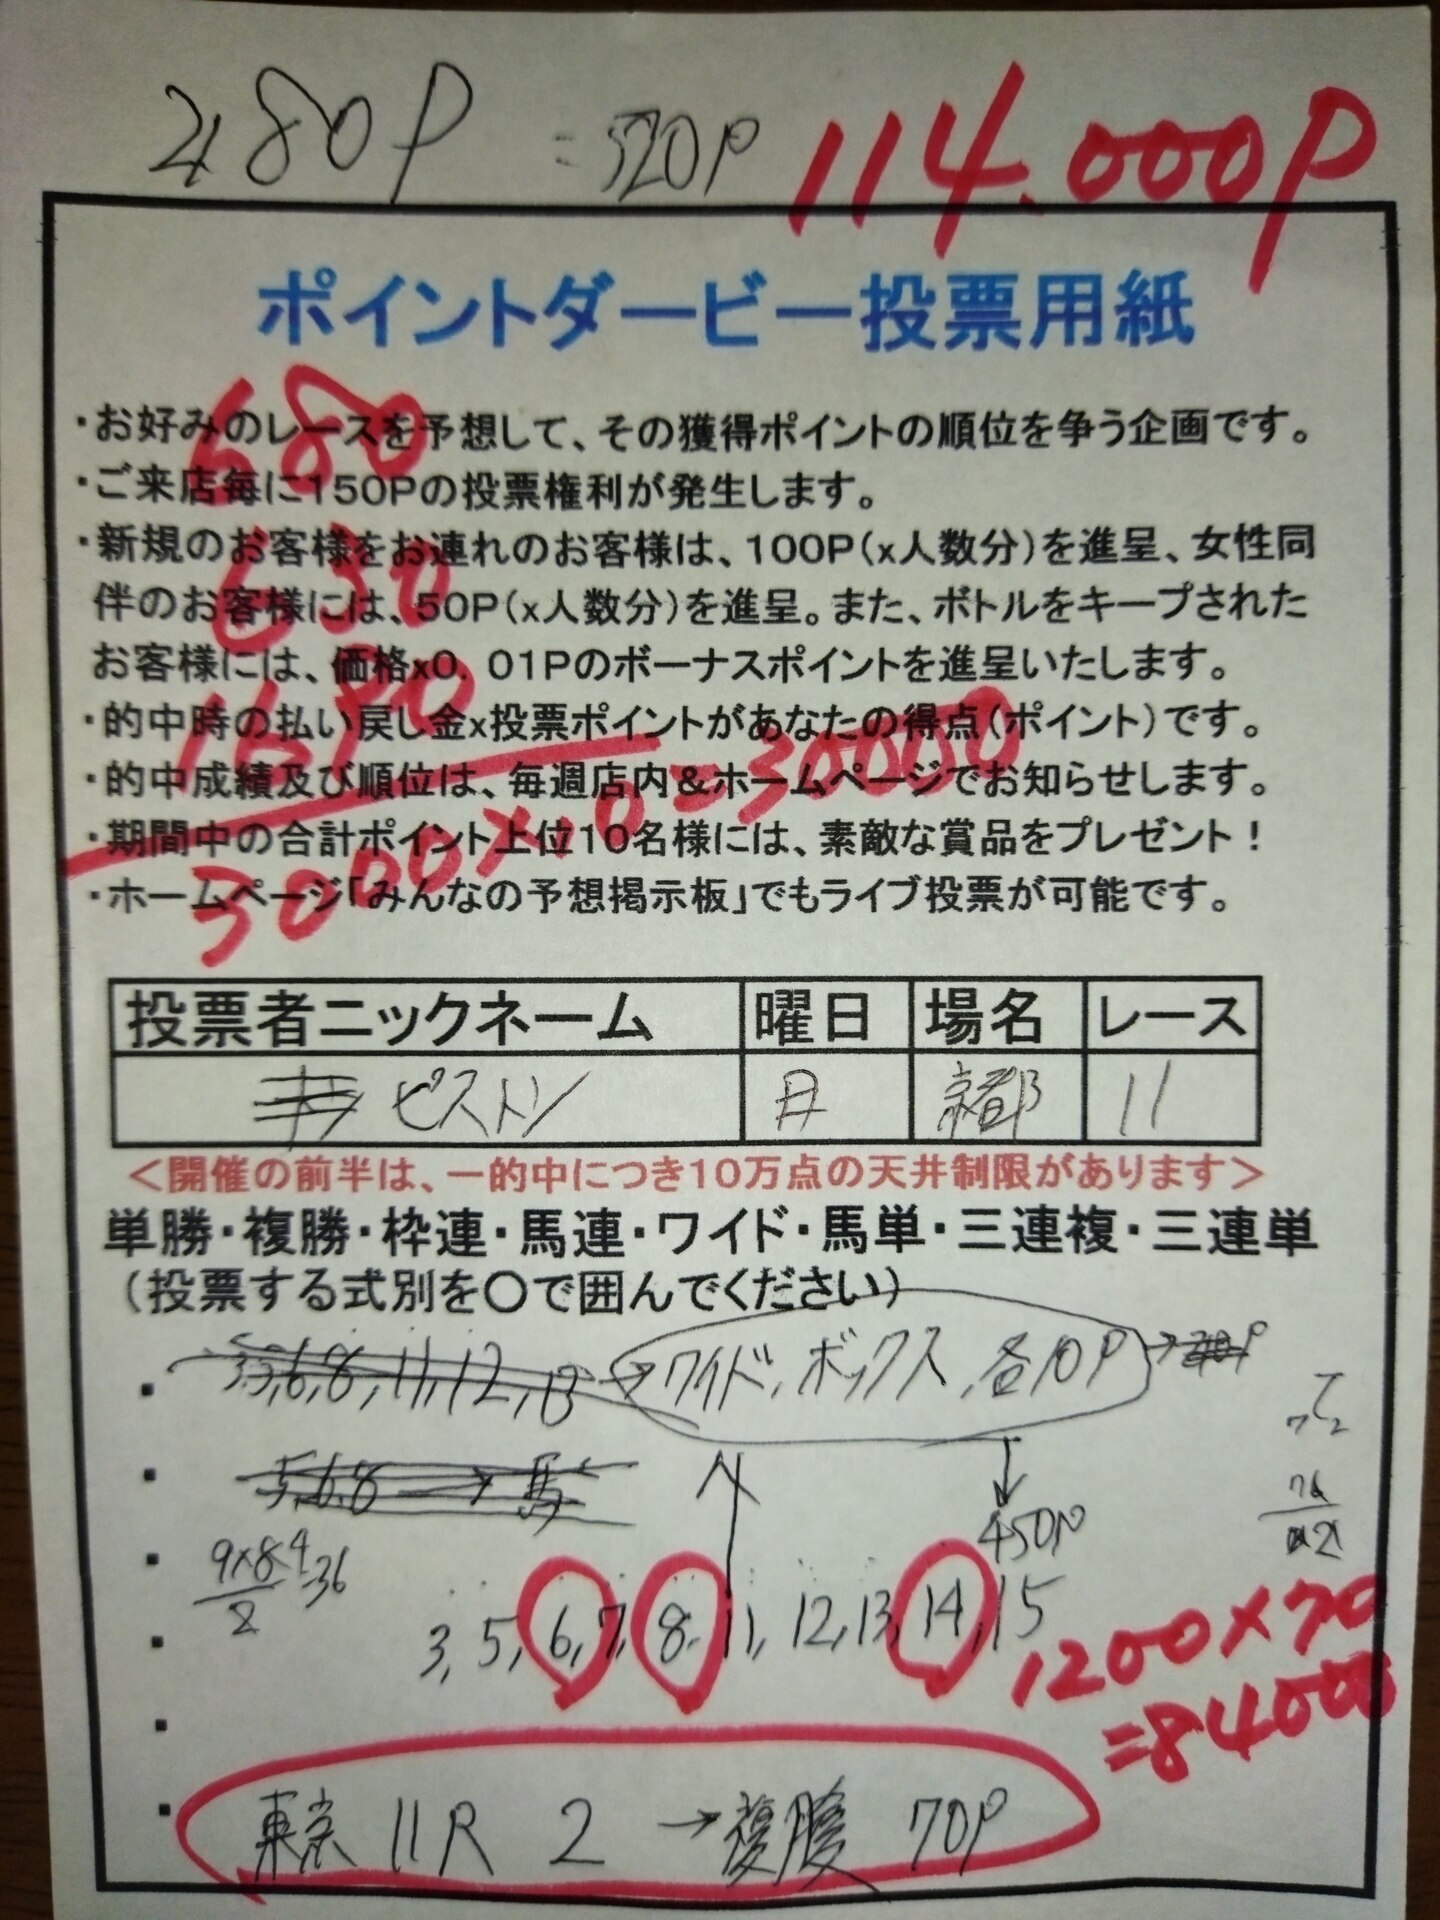 480P =520P 114.000P
ポイントダービー投票用紙
・お好みのレースを予想して、その獲得ポイントの順位を争う企画です。
680
・ご来店毎に150Pの投票権利が発生します。
・新規のお客様をお連れのお客様は、100P(x人数分)を進呈、女性同
伴のお客様には、50P(x人数分)を進呈。また、ボトルをキープされた
お客様には、価格x0.01Pのボーナスポイントを進呈いたします。
・的中時の払い戻し金x投票ポイントがあなたの得点(ポイント)です。
・的中成績及び順位は、毎週店内&ホームページでお知らせします。
・期間中の合計ポイント上位10名様には、素敵な賞品をプレゼント!
3000×10=30000
・ホームページ「みんなの予想掲示板」でもライブ投票が可能です。
投票者ニックネーム 曜日 場名 レース
ピストン 日 京都 11
<開催の前半は、一的中につき10万点の天井制限があります>
単勝・複勝・枠連・馬連・ワイド・馬単・三連複・三連単
(投票する式別を○で囲んでください)
・ 3,5,6,8,11,12,13 → ワイド,ボックス,各10P →
・ 5,6,8 → 馬
450P
・ 9×8 4 36
2
・ 3,5,6,7,8,11,12,13,14,15
1200×70
=84000
・
・ 東京 11R 2 →複勝 70P